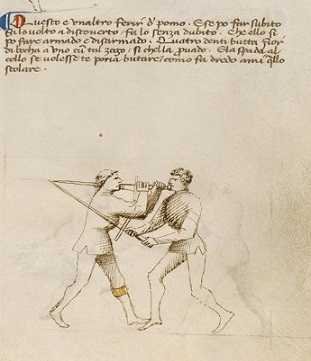 Questo e unaltro ferir d' pomo. E se po far subito
Si lo volto a discoverto. fa lo senza dubito. Che ello si
po fare armado e disarmado. Quatro denti butta fuor
di bocha a uno cum tal zogo, si che lla provado. E la spada al
collo se volesse te poria butare/ como fa dredo a mi q̃llo
scolare.